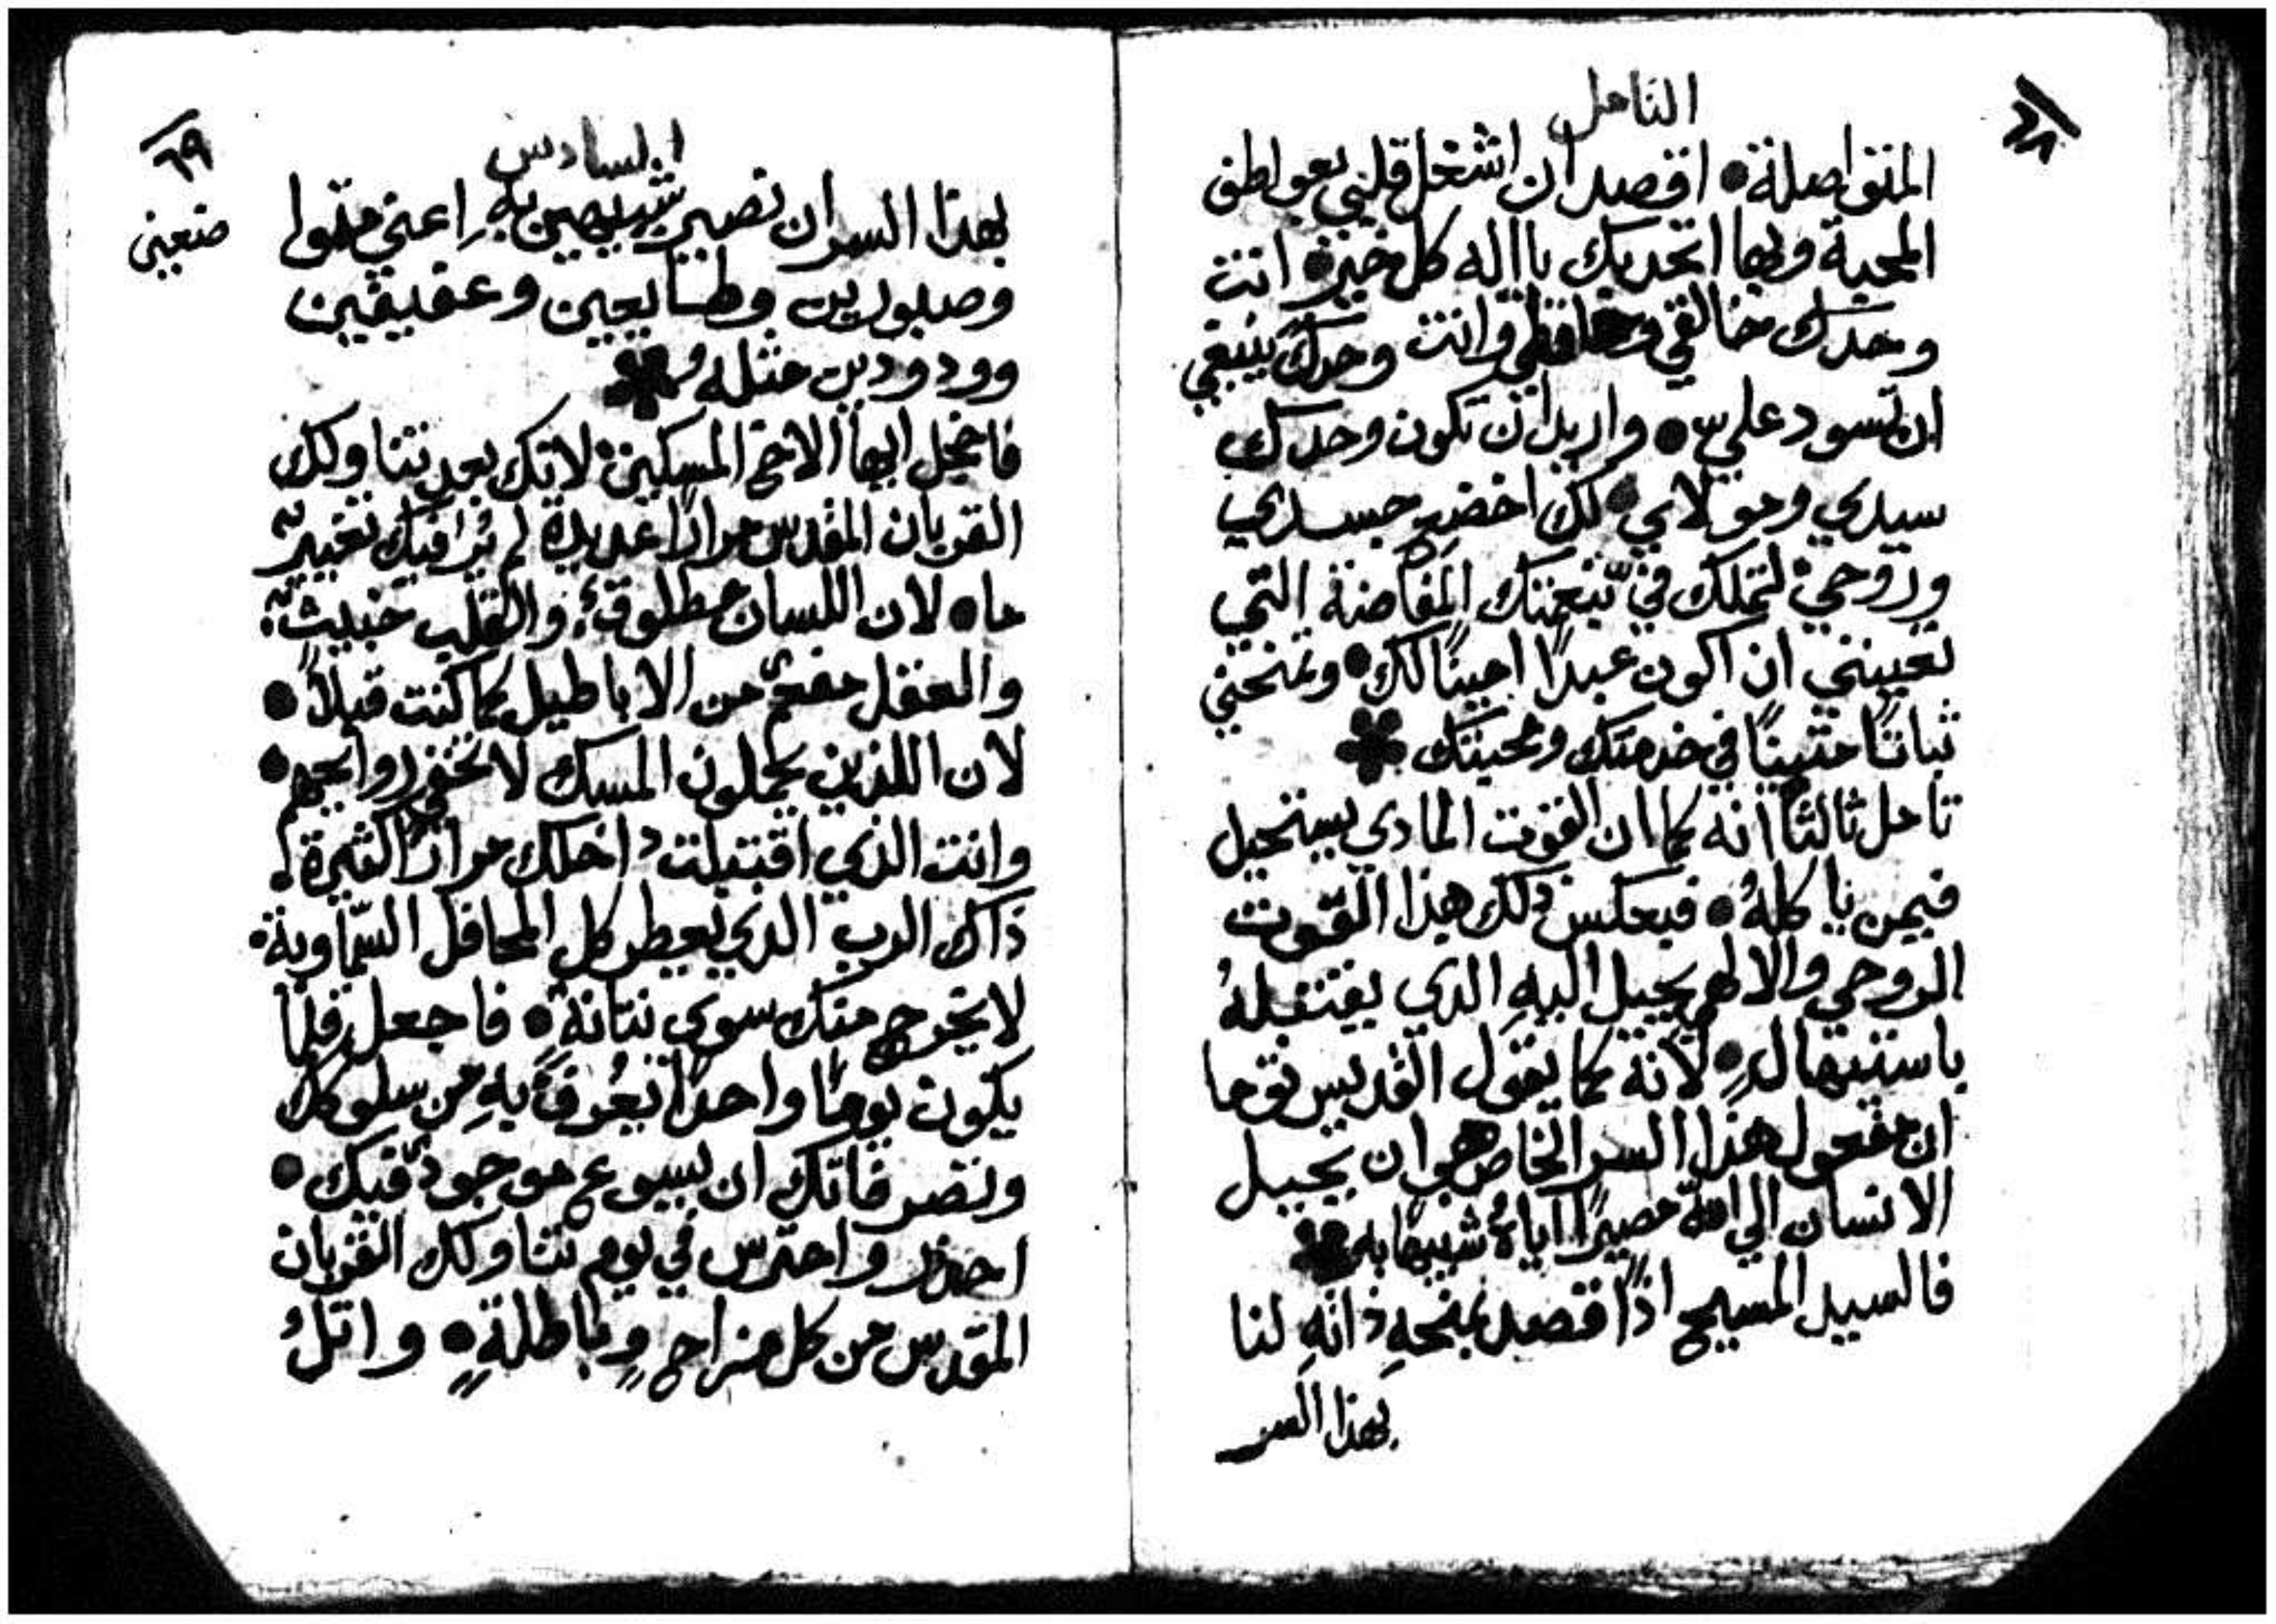 ٦٨
التامل
المتواصلة • اقصد ان اشغل قلبي بعواطف
المحبة وبها اتحد بك يا اله كل خير • انت
وحدك خالقي وحافظي وانت وحدك ينبغي
ان تسود علي • واريد ان تكون وحدك
سيدي ومولاي • لك اخضع جسدي
وروحي لتملك في نعمتك المفاضة التي
تعينني ان اكون عبدًا امينًا لك • وتمنحني
ثباتًا متينًا في خدمتك ومحبتك
تامل ثالثًا انه كما ان القوت المادي يستحيل
فيمن ياكلهُ • فبعكس ذلك هذا القوت
الروحي والالهي يحيل اليهِ الذي يقتبلهُ
باستيهالٍ • لانه كما يقول القديس توما
ان مفعول هذا السر الخاص هو ان يحيل
الانسان الي الله مصيرًا اياهُ شبيهًا به
فالسيد المسيح اذًا قصد بمنحهِ ذاتهِ لنا
بهذا السر
٦٩
السادس
بهذا السر ان نصير شبيهين بهِ اعني متوا
ضعين
وصبورين وطايعين وعفيفين
وودودين مثله
فاخجل ايها الاخ المسكين لانك بعد تناولك
القربان المقدس مرارًا عديدة لم يُرَ فيك تغييرٌ
ما • لان اللسان مطلوقٌ والقلب خبيثٌ
والعقل مفعمٌ من الاباطيل كما كنت قبلاً •
لان اللذين يحملون المسك لا تخفي روايحهم •
وانت الذي اقتبلت داخلك مرارًا كثيرة
ذاك الرب الذي يعطر كل المحافل السماوية •
لا يخرج منك سوى نتانة • فاجعل رقلما
يكون يومًا واحدًا يُعرف بهِ من سلوكك
وتصرفاتك ان يسوع موجودٌ فيك •
احذر واحترس في يوم تناولك القربان
المقدس من كل مزاحٍ وباطلةٍ • واتلُ